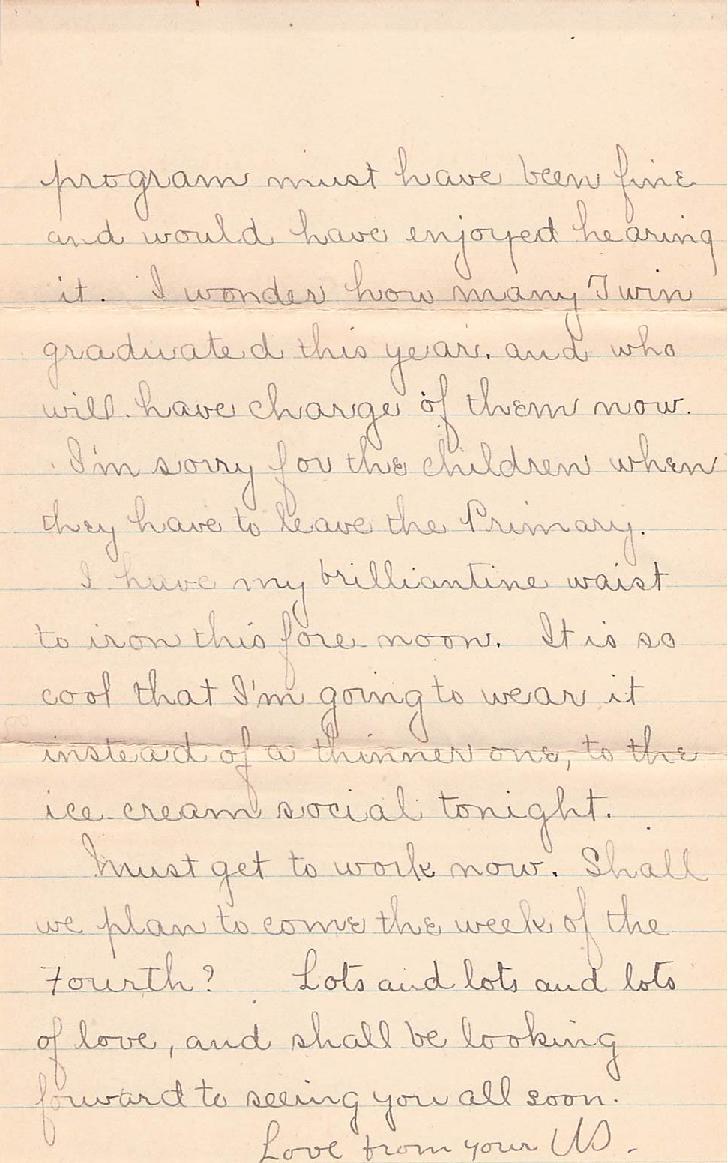 program must have been fine
and would have enjoyed hearing
it. I wonder how many Twin
graduated this year. and who
will have charge of them now.
I'm sorry for the children when
they have to leave the Primary.
I have my brilliantine waist
to iron this fore-noon. It is so
cool that I'm going to wear it
instead of a thinner one, to the
ice-cream social tonight.
Must get to work now. Shall
we plan to come the week of the
Fourth? Lots and lots and lots
of love, and shall be looking
forward to seeing you all soon.
Love from your